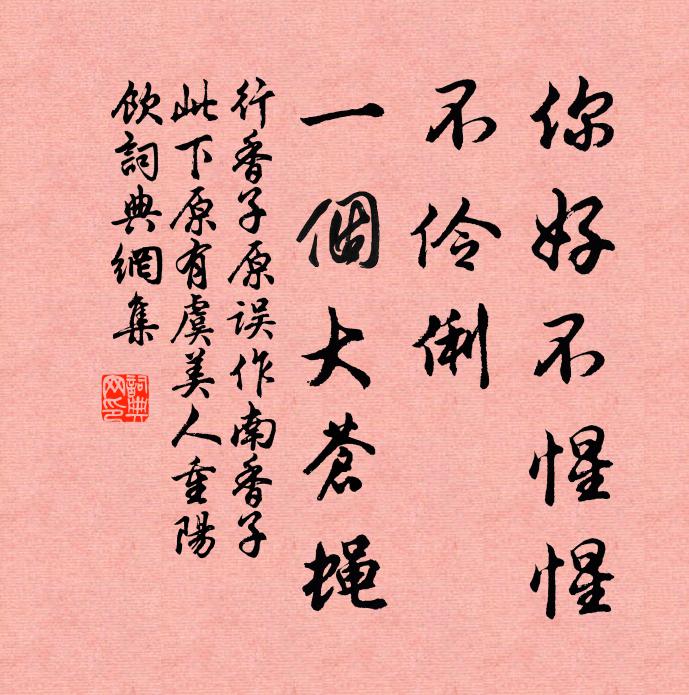 你好不惺惺
不伶俐
一個大蒼蝇
行香子原误作南香子
此下原有虞美人重陽
飲詞典網集
詞典网印